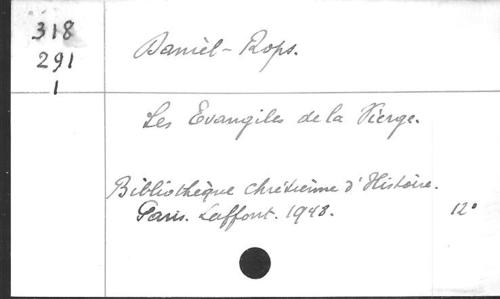 318
291
1
Daniel-Rops.
Les Evangiles de la Vierge.
Bibliothèque chrétienne d'Histoire.
Paris. Laffont. 1948. 12°